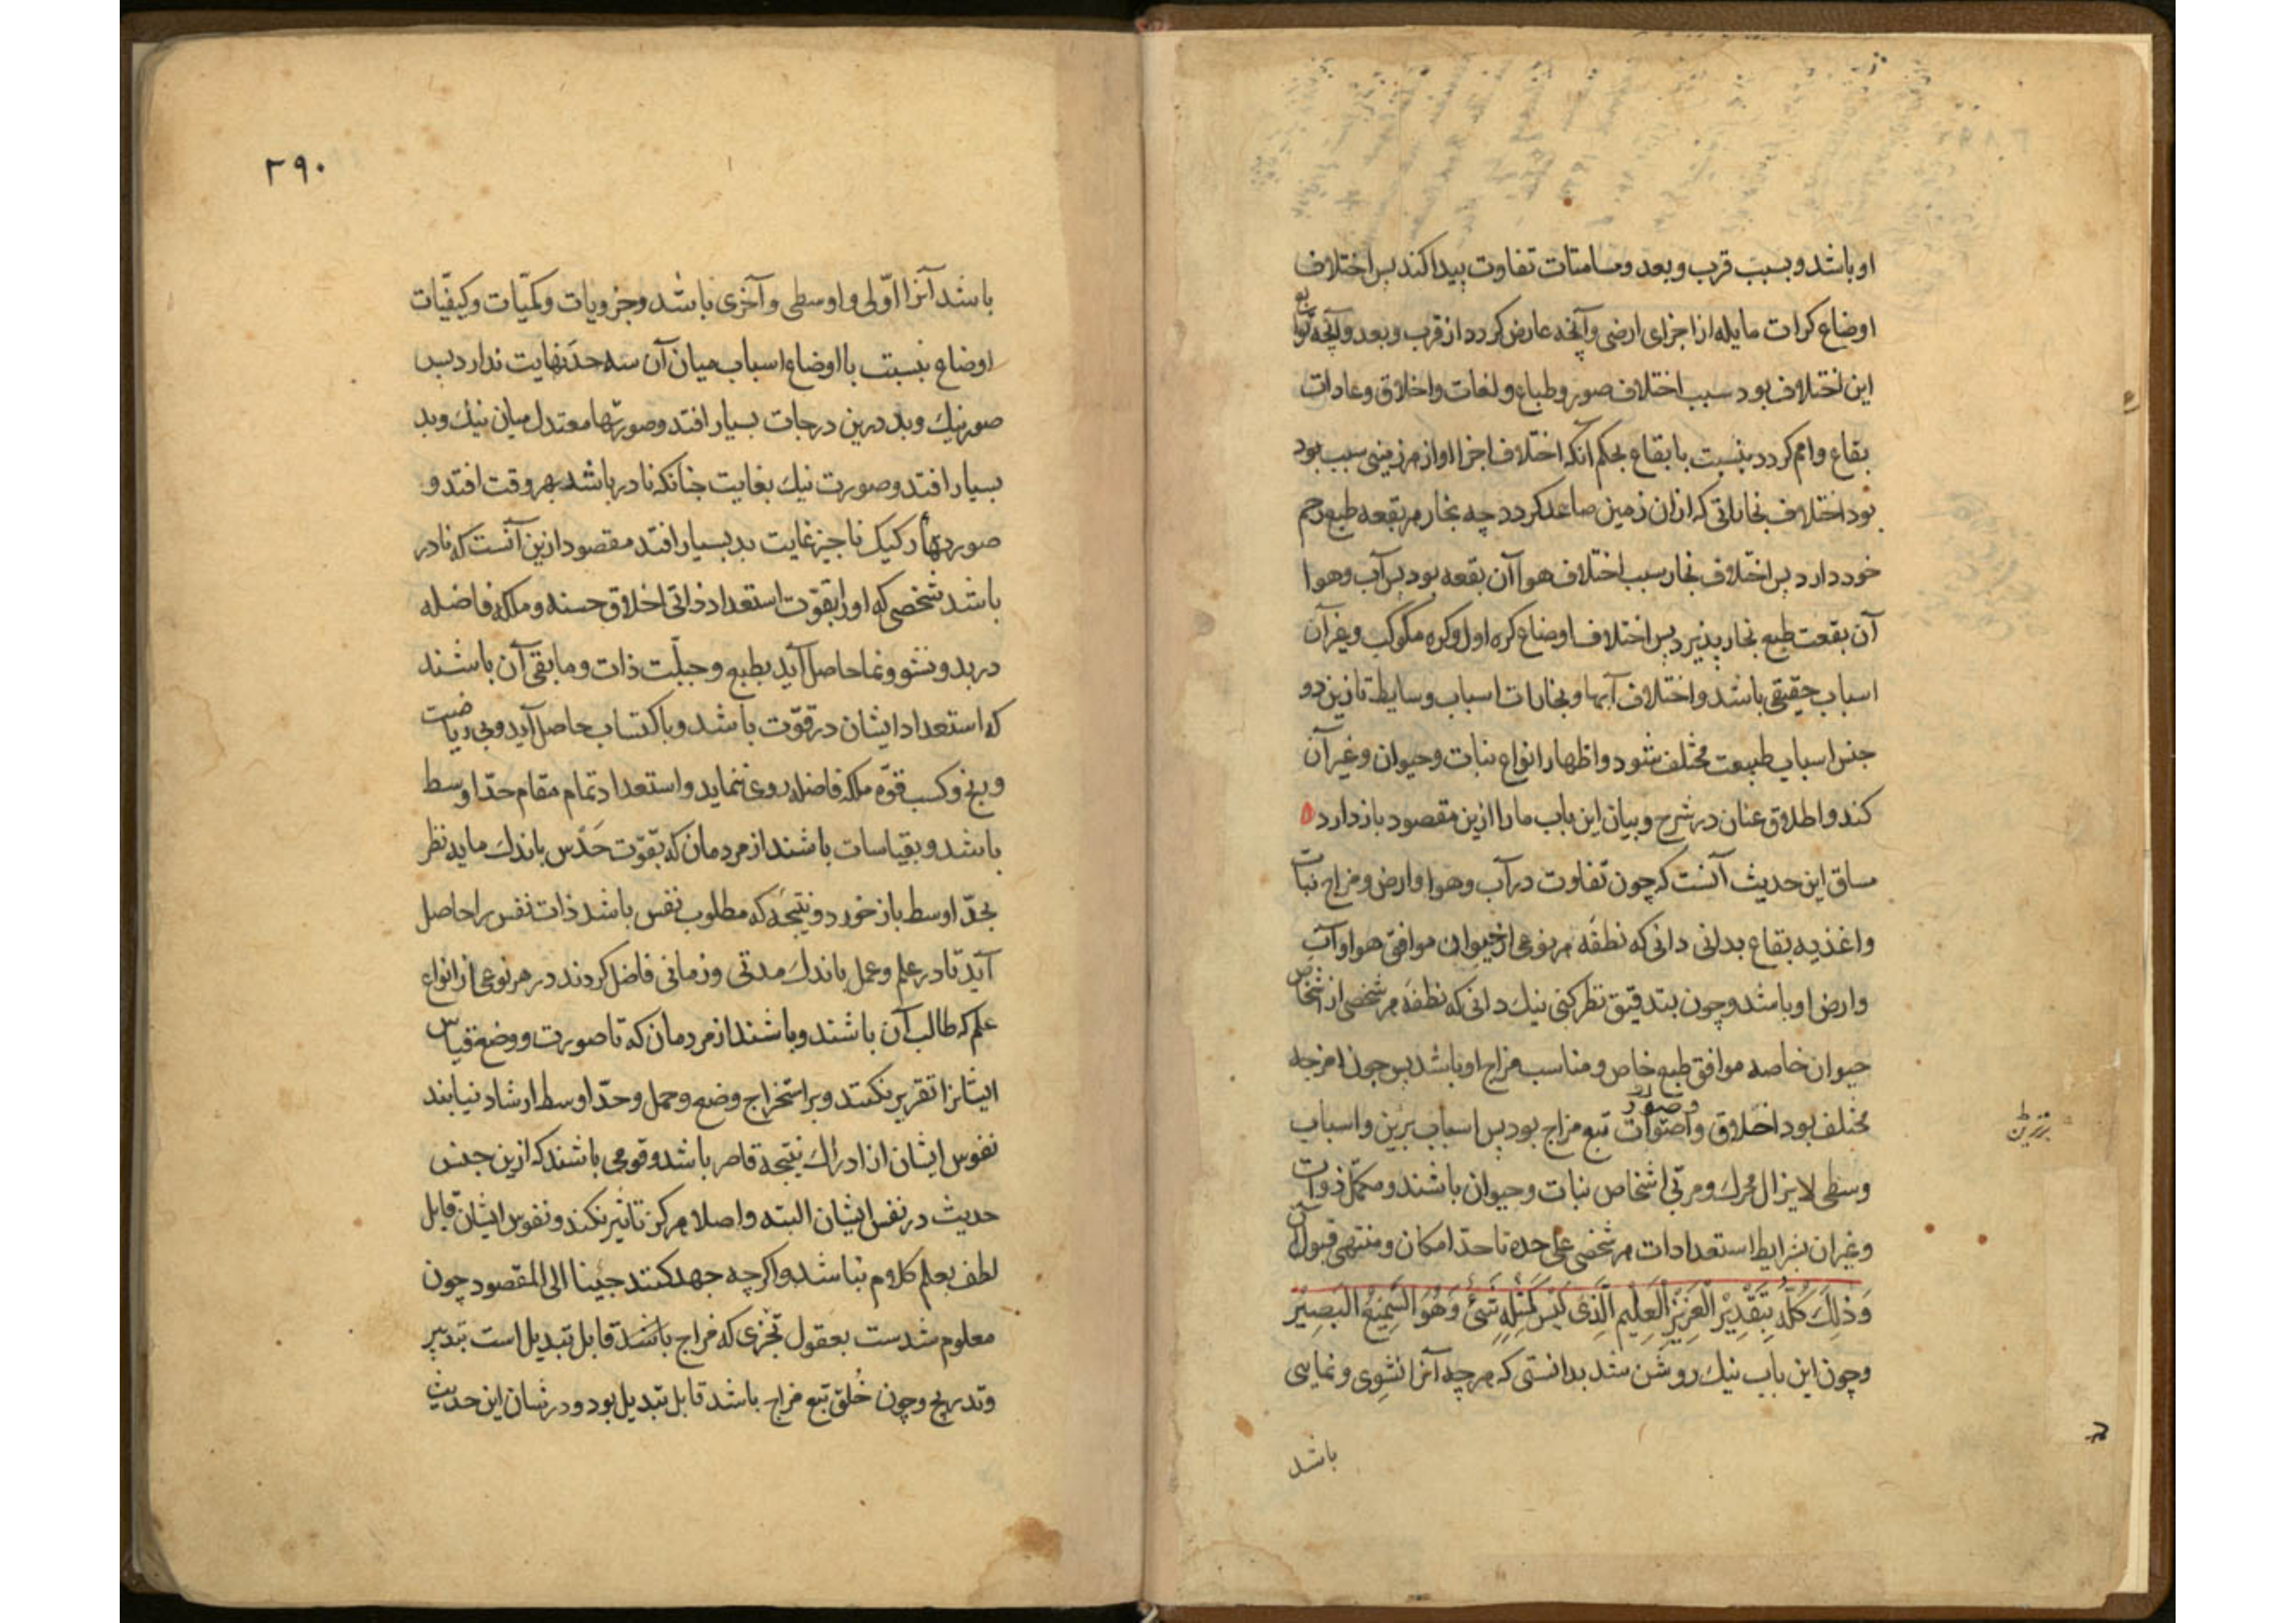 او باشد و بسبب قرب و بعد و مسامتات تفاوت پیدا کند پس اختلاف
اوضاع کرات مایله از اجزای ارضی و آنچه عارض کردد از قرب و بعد و آنچه توابع
این اختلاف بود سبب اختلاف صور و طباع و لغات و اخلاق و عادات
بقاع و امم کردد بنسبت با بقاع بحکم آنکه اختلاف اجزا او از هر زمینی سبب بود
بود اختلاف بخاراتی که ازان زمین صاعد کردد چه بخار هر بقعه طبع رحم
خود دارد پس اختلاف بخار سبب اختلاف هوا آن بقعه بود پس آب و هوا
آن بقعت طبع بخار پذیرد پس اختلاف اوضاع کره اول و کره مکوکب و غیر آن
اسباب حقیقی باشد و اختلاف آبها و بخارات اسباب و سایط تا زین دو
جنس اسباب طبیعت مختلف شود و اظهار انواع نبات و حیوان و غیر آن
کند و اطلاق عنان در شرح و بیان این باب ما را ازین مقصود باز دارد ۵
مساق این حدیث آنست که چون تفاوت در آب و هوا و ارض و مزاج نبات
و اغذیه بقاع بدانی دانی که نطفه هر نوعی از حیوان موافق هوا و آب
و ارض او باشد و چون بتدقیق نظر کنی نیک دانی که نطفه هر شخصی از اشخاص
حیوان خاصه موافق طبع خاص و مناسب مزاج او باشد پس چون امزجه
مختلف بود اخلاق و اصوات و صور تبع مزاج بود پس اسباب برین و اسباب
وسطی لایزال محرک و مربی اشخاص نبات و حیوان باشند و مکمل ذوات
و غیر ان بشرایط استعدادات هر شخصی علی حده تا حد امکان و منتهی قبول آن
وَذٰلِكَ كُلُّه بِتَقْدِيْرِ الْعَزِيْزِ الْعَلِيْمِ الَّذِى لَيْسَ كَمِثْلِهِ شَىْءٌ وَهُوَ السَّمِيْعُ الْبَصِيْرُ
و چون این باب نیک روشن شد بدانستی که هر چه آنرا نشوی و نمایی
باشد
۲۹۰
باشد آنرا اوّلی و اوسطی و آخری باشد و جزویات و کمّیات و کیفیّات
اوضاع بنسبت با اوضاع اسباب میان آن سه حد نهایت ندارد پس
صور نیک و بد درین درجات بسیار افتد و صورتها معتدل میان نیک و بد
بسیار افتد و صورت نیک بغایت جنانکه نادر باشد بهر وقت افتد و
صورتهاء رکیک ناجیز غایت بد بسیار افتد مقصود ازین آنست که نادر
باشد شخصی که او را بقوّت استعداد ذاتی اخلاق حسنه و ملکه فاضله
در بدو نشو و نما حاصل آید بطبع و جبلّت ذات و ما بقی آن باشند
که استعداد ایشان در قوّت باشد و باکتساب حاصل آید و بی ریاضت
و رنج و کسب قوّه ملکه فاضله روی ننماید و استعداد تمام مقام حدّ اوسط
باشد و بقیاسات باشند از مردمان که بقوّت حَدْس باندک مایه نظر
بحدّ اوسط باز خورد و نتیجه که مطلوب نفس باشد ذات نفس را حاصل
آید تا در علم و عمل باندک مدتی و زمانی فاضل کردند در هر نوعی از انواع
علم که طالب آن باشند و باشند از مردمان که تا صورت و وضع قیاس
ایشانرا تقریر نکنند و بر استخراج وضع و حمل و حدّ اوسط ارشاد نیابند
نفوس ایشان از ادراک نتیجه قاصر باشد و قومی باشند که ازین جنس
حدیث در نفس ایشان البته و اصلا هرکز تاثیر نکند و نفوس ایشان قابل
لطف بعلم کلام نباشد و اکرچه جهد کنند جئنا الی المقصود چون
معلوم شدست بعقول تجزی که مزاج باشد قابل تبدیل است بتدبیر
و تدریج و چون خُلق تبع مزاج باشد قابل تبدیل بود و در شان این حدیث